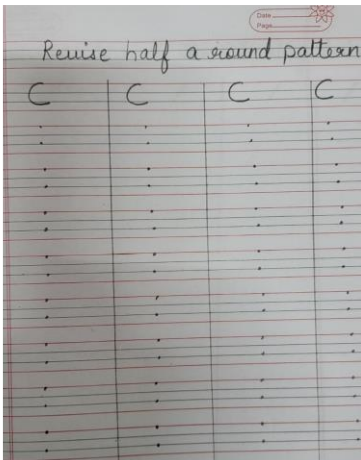 Date
Page
Revise half a round pattern
C C C C